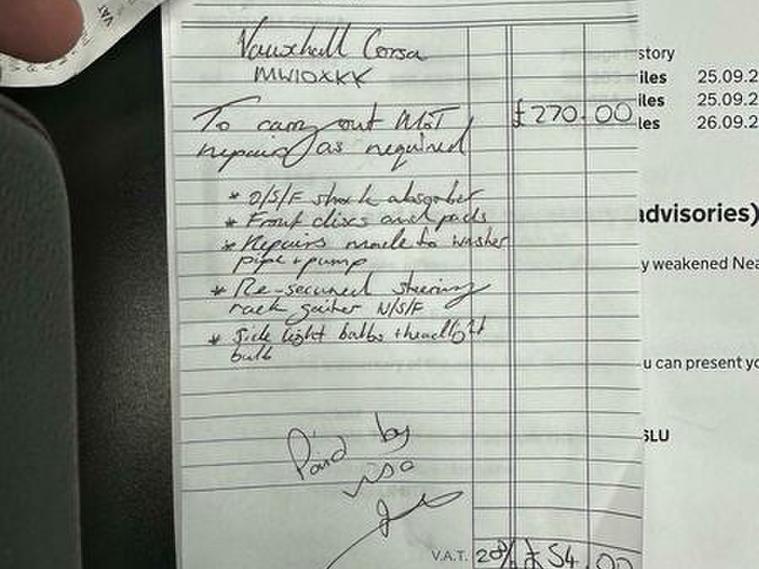 VAT
Vauxhall Corsa
MW10XKK
To carry out MOT £270.00
repairs as required
* O/S/F shock absorber
* Front discs and pads
* Repairs made to washer
pipe + pump
* Re-secured steering
rack gaiter N/S/F
* Side light bulbs + headlight
bulb
Paid by
V.A.T. 20% £54.00
story
iles 25.09.2
iles 25.09.2
les 26.09.2
advisories)
y weakened Nea
u can present yo
SLU